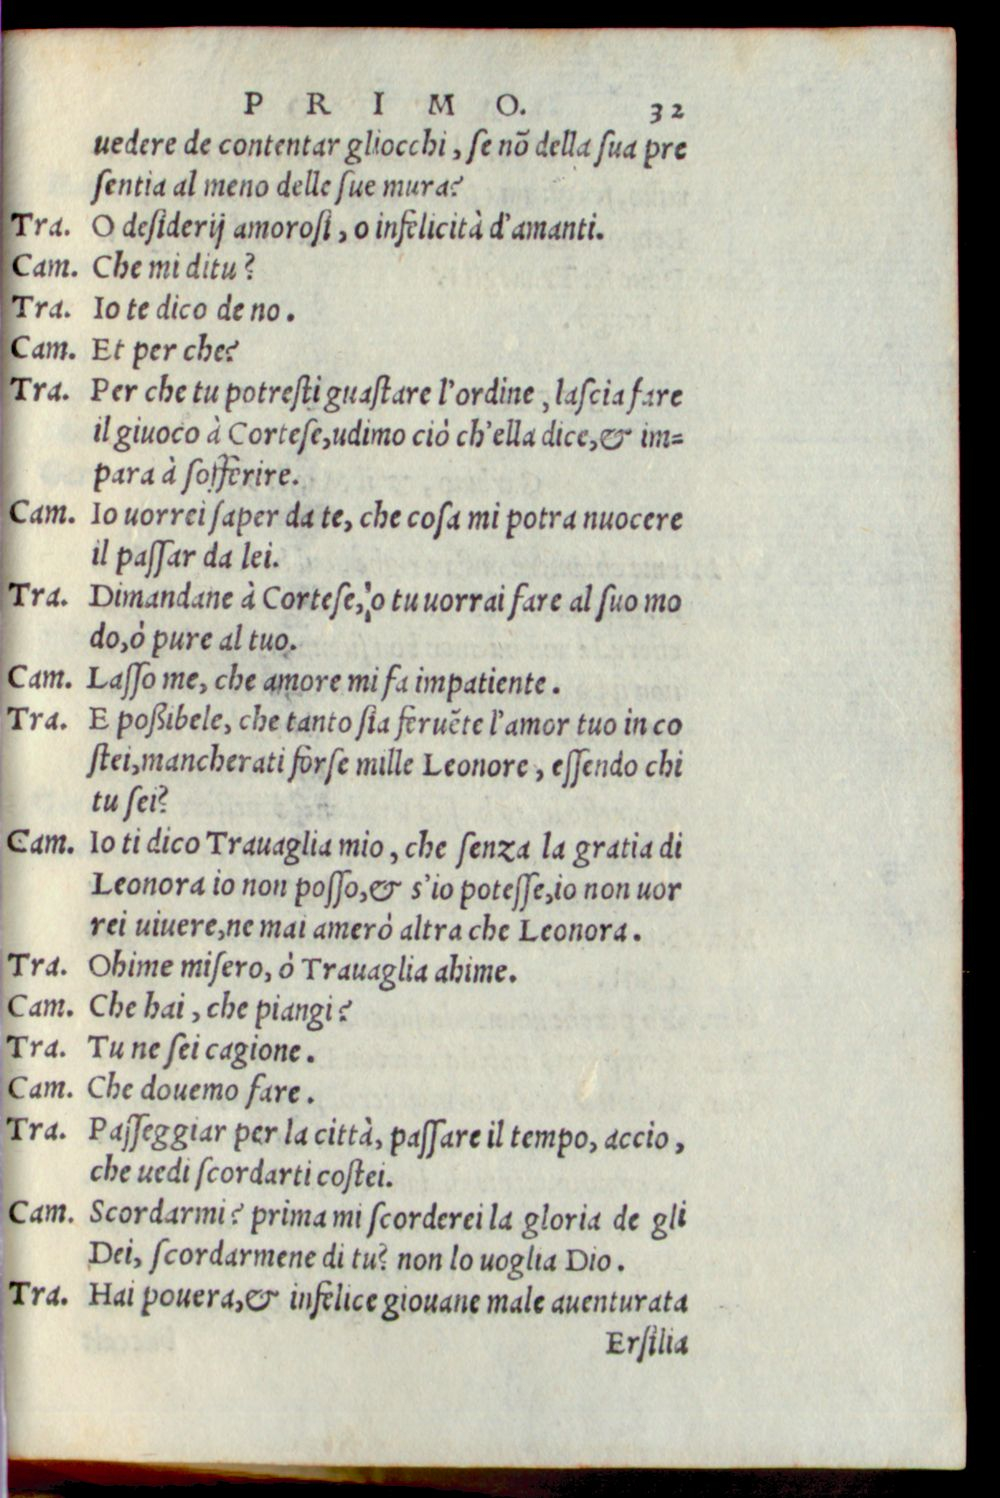 PRIMO. 32
uedere de contentar gliocchi, ſe nō della ſua pre
ſentia al meno delle ſue mura?
Tra. O deſiderij amoroſi, o infelicità d'amanti.
Cam. Che mi ditu?
Tra. Io te dico de no.
Cam. Et per che?
Tra. Per che tu potreſti guaſtare l'ordine, laſcia fare
il giuoco à Corteſe, udimo ciò ch'ella dice, & im=
para à ſofferire.
Cam. Io uorrei ſaper da te, che coſa mi potra nuocere
il paſſar da lei.
Tra. Dimandane à Corteſe, o tu uorrai fare al ſuo mo
do, ò pure al tuo.
Cam. Laſſo me, che amore mi fa impatiente.
Tra. E poßibele, che tanto ſia feruẽte l'amor tuo in co
ſtei, mancherati forſe mille Leonore, eſſendo chi
tu ſei?
Cam. Io ti dico Trauaglia mio, che ſenza la gratia di
Leonora io non poſſo, & s'io poteſſe, io non uor
rei uiuere, ne mai amerò altra che Leonora.
Tra. Ohime miſero, ò Trauaglia ahime.
Cam. Che hai, che piangi?
Tra. Tu ne ſei cagione.
Cam. Che douemo fare.
Tra. Paſſeggiar per la città, paſſare il tempo, accio,
che uedi ſcordarti coſtei.
Cam. Scordarmi? prima mi ſcorderei la gloria de gli
Dei, ſcordarmene di tu? non lo uoglia Dio.
Tra. Hai pouera, & infelice giouane male auenturata
Erſilia